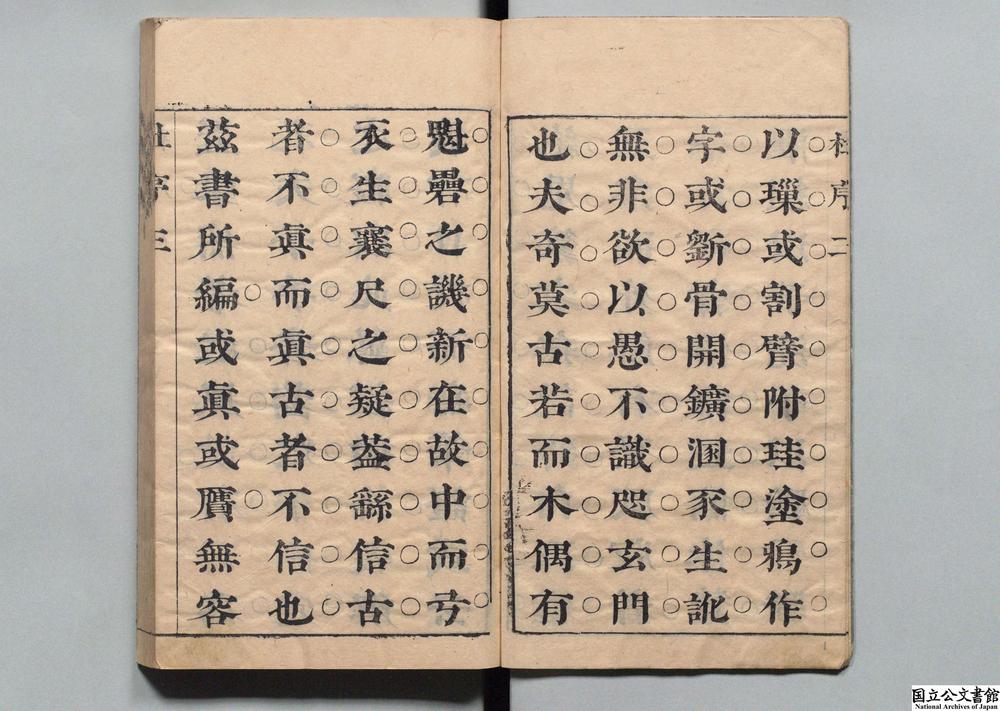 杜序 二
以璅或割臂附珪塗鴉作
字或斵骨開鑛溷豕生訛
無非欲以愚不識咫玄門
也夫奇莫古若而木偶有
魁礨之譏新在故中而亥
豕生襄尺之疑葢繇信古
者不眞而眞古者不信也
茲書所編或眞或贗無容
杜序 三
国立公文書館
National Archives of Japan